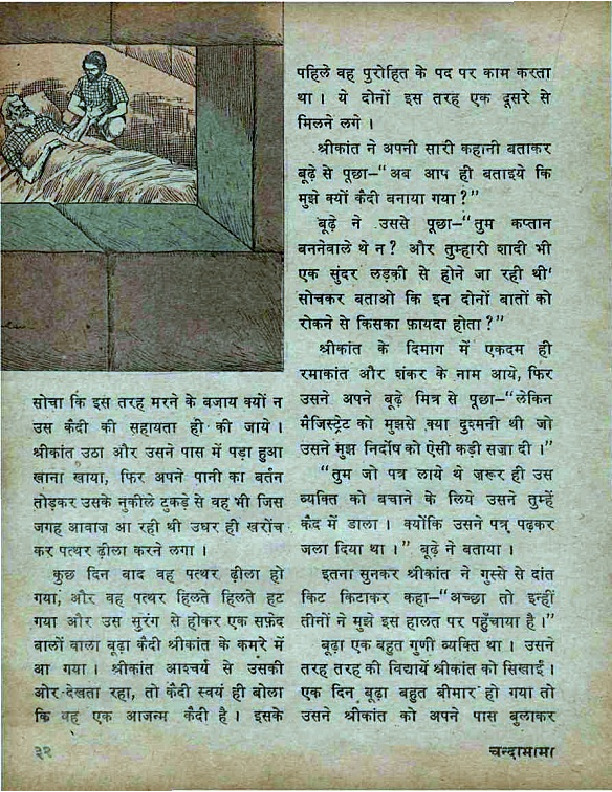 सोचा कि इस तरह मरने के बजाय क्यों न
उस कैदी की सहायता ही की जाये ।
श्रीकांत उठा और उसने पास में पड़ा हुआ
खाना खाया, फिर अपने पानी का बर्तन
तोड़कर उसके नुकीले टुकड़े से वह भी जिस
जगह आवाज़ आ रही थी उधर ही खरोंच
कर पत्थर ढ़ीला करने लगा ।
कुछ दिन बाद वह पत्थर ढ़ीला हो
गया, और वह पत्थर हिलते हिलते हट
गया और उस सुरंग से होकर एक सफ़ेद
बालों वाला बूढ़ा कैदी श्रीकांत के कमरे में
आ गया । श्रीकांत आश्चर्य से उसकी
ओर देखता रहा, तो कैदी स्वयं ही बोला
कि वह एक आजन्म कैदी है । इसके
पहिले वह पुरोहित के पद पर काम करता
था । ये दोनों इस तरह एक दूसरे से
मिलने लगे ।
श्रीकांत ने अपनी सारी कहानी बताकर
बूढ़े से पूछा–"अब आप ही बताइये कि
मुझे क्यों कैदी बनाया गया ?"
बूढ़े ने उससे पूछा–"तुम कप्तान
बननेवाले थे न ? और तुम्हारी शादी भी
एक सुंदर लड़की से होने जा रही थी'
सोचकर बताओ कि इन दोनों बातों को
रोकने से किसका फ़ायदा होता ?"
श्रीकांत के दिमाग में एकदम ही
रमाकांत और शंकर के नाम आये, फिर
उसने अपने बूढ़े मित्र से पूछा–"लेकिन
मैजिस्ट्रेट को मुझसे क्या दुश्मनी थी जो
उसने मुझ निर्दोष को ऐसी कड़ी सज़ा दी ।"
"तुम जो पत्र लाये थे ज़रूर ही उस
व्यक्ति को बचाने के लिये उसने तुम्हें
कैद में डाला । क्योंकि उसने पत्र पढ़कर
जला दिया था ।" बूढ़े ने बताया ।
इतना सुनकर श्रीकांत ने गुस्से से दांत
किट किटाकर कहा–"अच्छा तो इन्हीं
तीनों ने मुझे इस हालत पर पहुँचाया है ।"
बूढ़ा एक बहुत गुणी व्यक्ति था । उसने
तरह तरह की विद्यायें श्रीकांत को सिखाईं ।
एक दिन बूढ़ा बहुत बीमार हो गया तो
उसने श्रीकांत को अपने पास बुलाकर
३२
चन्दामामा